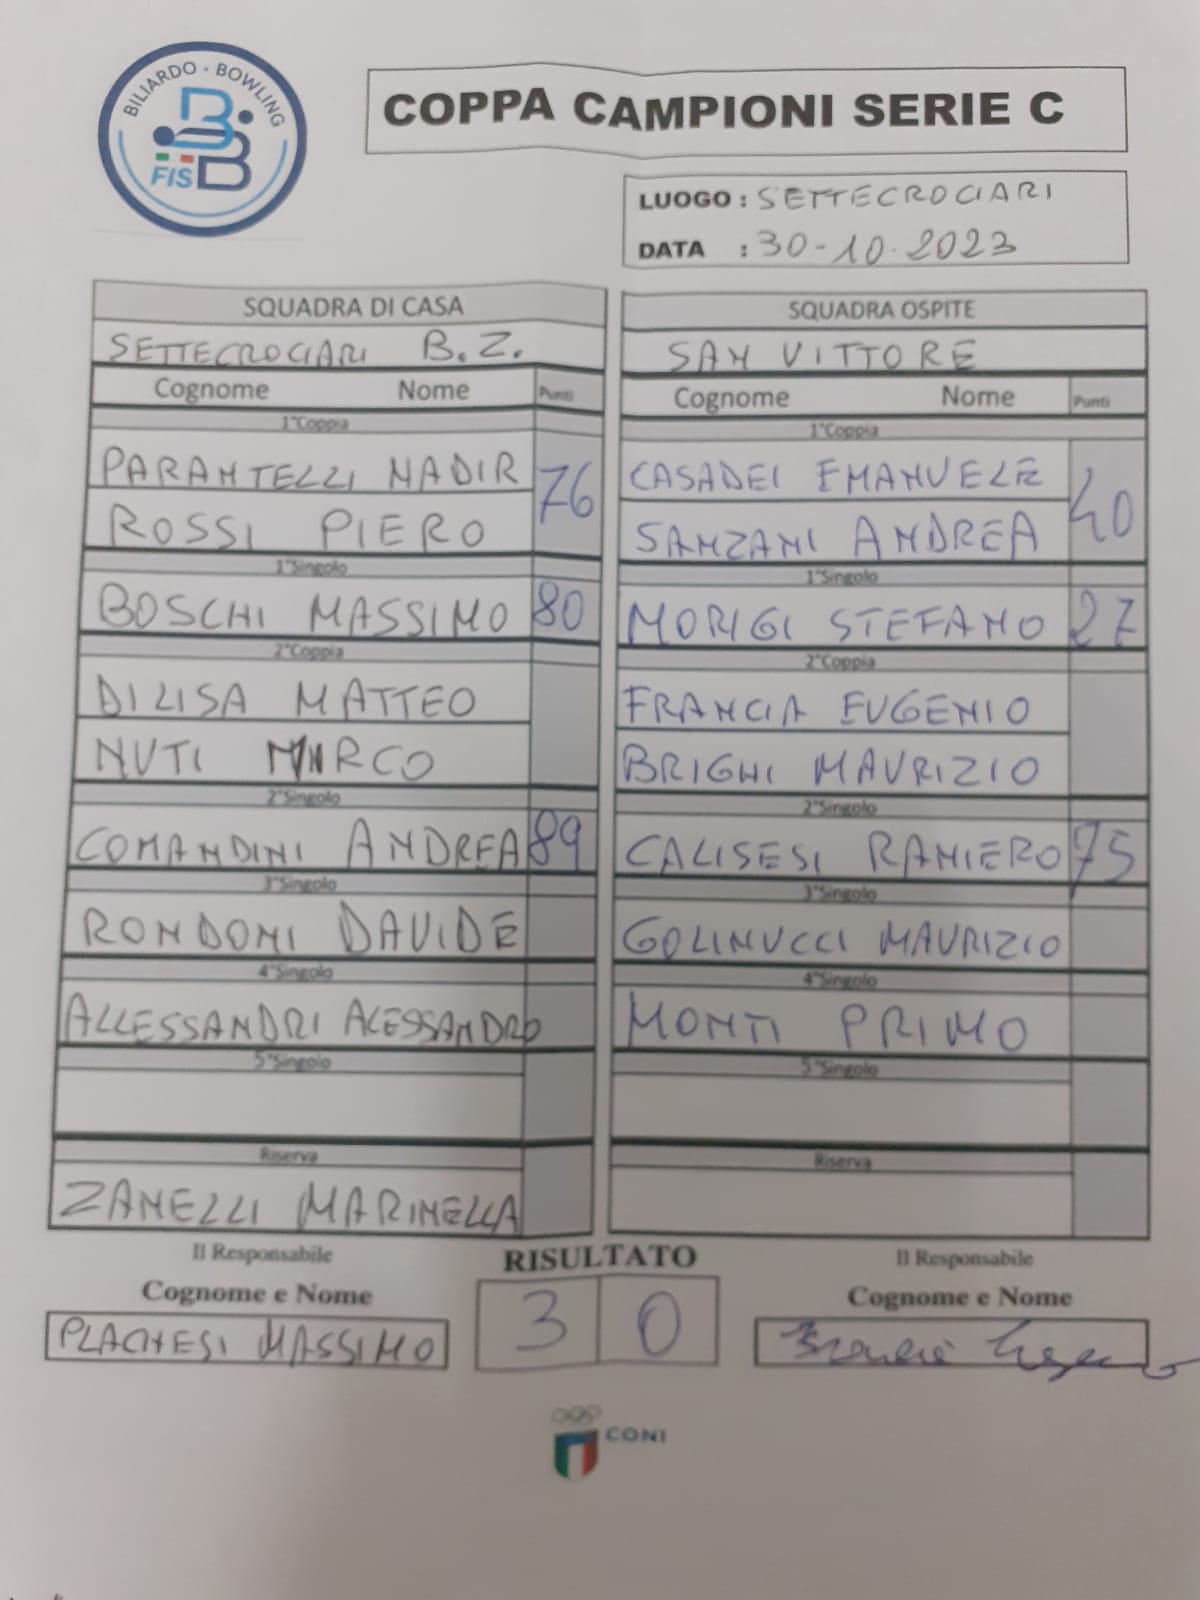 BILIARDO · BOWLING
FISBB
COPPA CAMPIONI SERIE C
LUOGO : SETTECROCIARI
DATA : 30-10.2023
SQUADRA DI CASA
SETTECROCIARI B.Z.
Cognome Nome Punti
1°Coppia
PARANTELLI NADIR 76
ROSSI PIERO
1°Singolo
BOSCHI MASSIMO 80
2°Coppia
DI LISA MATTEO
NUTI MIRCO
2°Singolo
COMANDINI ANDREA 89
3°Singolo
RONDONI DAVIDE
4°Singolo
ALLESSANDRI ALESSANDRO
5°Singolo
Riserva
ZANELLI MARINELLA
SQUADRA OSPITE
SAN VITTORE
Cognome Nome Punti
1°Coppia
CASADEI EMANUELE 40
SANZANI ANDREA
1°Singolo
MORIGI STEFANO 27
2°Coppia
FRANCIA EUGENIO
BRIGHI MAURIZIO
2°Singolo
CALISESI RANIERO 75
3°Singolo
GOLINUCCI MAURIZIO
4°Singolo
MONTI PRIMO
5°Singolo
Riserva
Il Responsabile
Cognome e Nome
PLACHESI MASSIMO
RISULTATO
3 0
Il Responsabile
Cognome e Nome
CONI